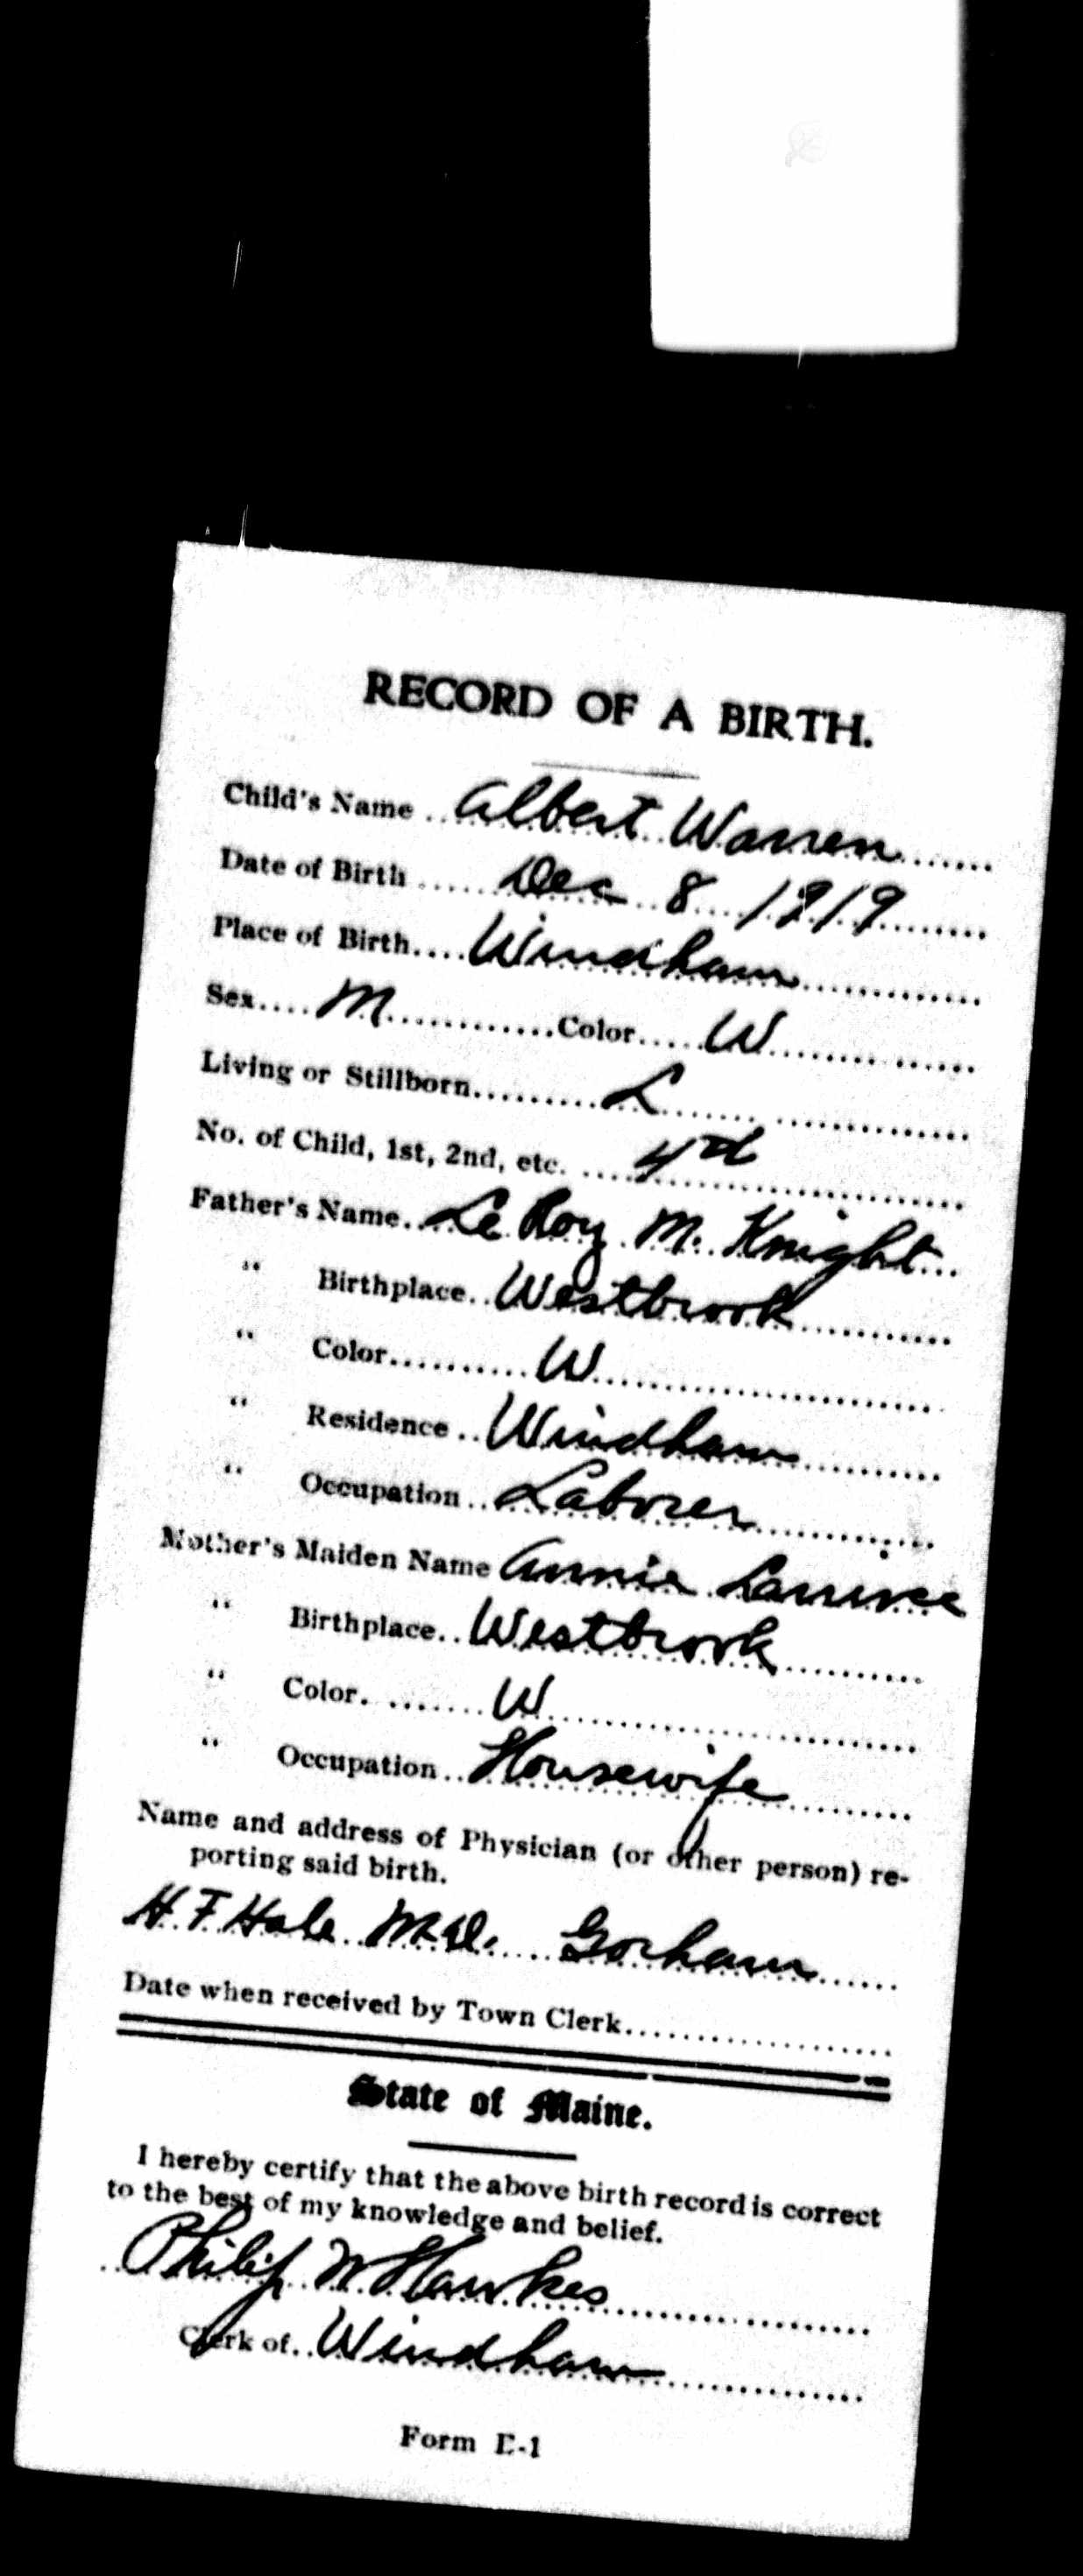 RECORD OF A BIRTH.
Child's Name Albert Warren
Date of Birth Dec 8 1919
Place of Birth Windham
Sex M Color W
Living or Stillborn L
No. of Child, 1st, 2nd, etc. 4d
Father's Name Le Roy M. Knight
" Birthplace Westbrook
" Color W
" Residence Windham
" Occupation Laborer
Mother's Maiden Name Annie
" Birthplace Westbrook
" Color W
" Occupation Housewife
Name and address of Physician (or other person) re-
porting said birth.
H. F. Hale M.D. Gorham
Date when received by Town Clerk
State of Maine.
I hereby certify that the above birth record is correct
to the best of my knowledge and belief.
Philip W Hawkes
Clerk of Windham
Form E-1